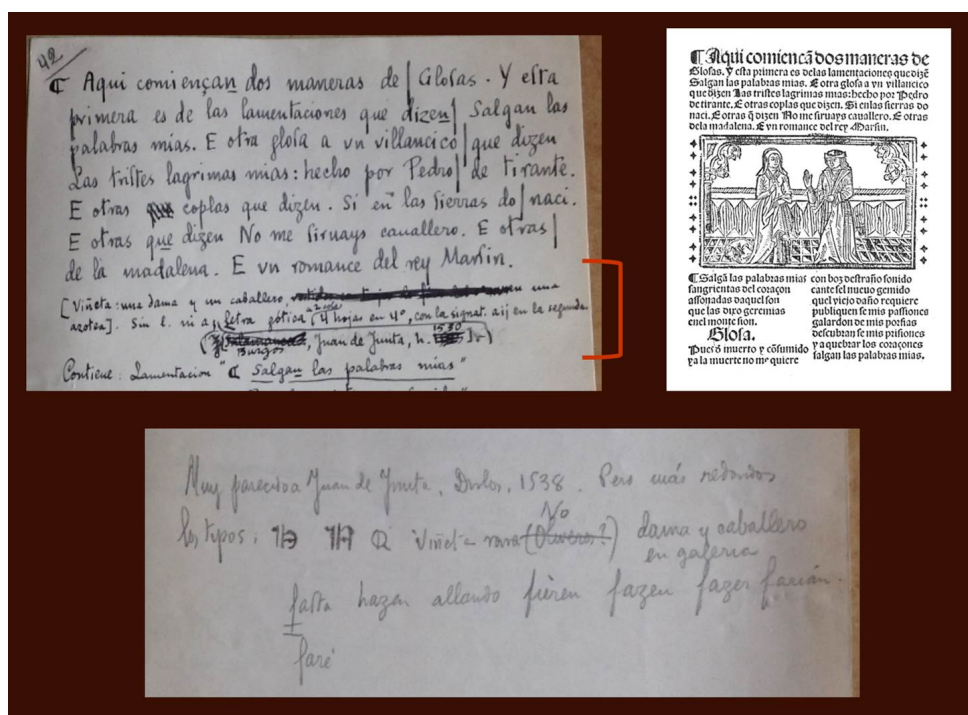 42
⁋ Aqui comiençan dos maneras de | Glosas. Y esta
primera es de las lamentaciones que dizen | Salgan las
palabras mias. E otra glosa a vn villancico | que dizen
Las tristes lagrimas mias: hecho por Pedro | de tirante.
E otras coplas que dizen. Si en las sierras do | naci.
E otras que dizen No me siruays cauallero. E otras |
de la madalena. E vn romance del rey Marsin.
[Viñeta: una dama y un caballero en una
azotea]. Sin l. ni a, Letra gótica, a 2 cols. 4 hojas en 4º, con la signat. aij en la segunda.
(Salamanca, Burgos, Juan de Junta, h. 1530
Contiene: Lamentacion "⁋ Salgan las palabras mias"
⁋ Aqui comiencã dos maneras de
Glosas. Y esta primera es delas lamentaciones que dizẽ
Salgan las palabras mias. E otra glosa a vn villancico
que dizen Las tristes lagrimas mias: hecho por Pedro
de tirante. E otras coplas que dizen. Si enlas sierras do
naci. E otras q̃ dizen No me siruays cauallero. E otras
dela madalena. E vn romance del rey Marsin.
⁋ Salgã las palabras mias
sangrientas del coraçon
assonadas daquel son
que las dixo geremias
enel monte sion.
Glosa.
Pues õ muerto y cõsumido
ya la muerte no me quiere
con boz destraño sonido
cante sel nueuo gemido
quel viejo daño requiere
publiquen se mis passiones
galardon de mis porfias
descubran se mis prisiones
y a quebrar los coraçones
salgan las palabras mias.
Muy parecido a Juan de Junta, Burlos, 1538. Pero más redondos
los tipos: Viñeta rara (Oliveros?) No dama y caballero
en galeria
fasta hazen allando fieren fazen fazer farian.
faré